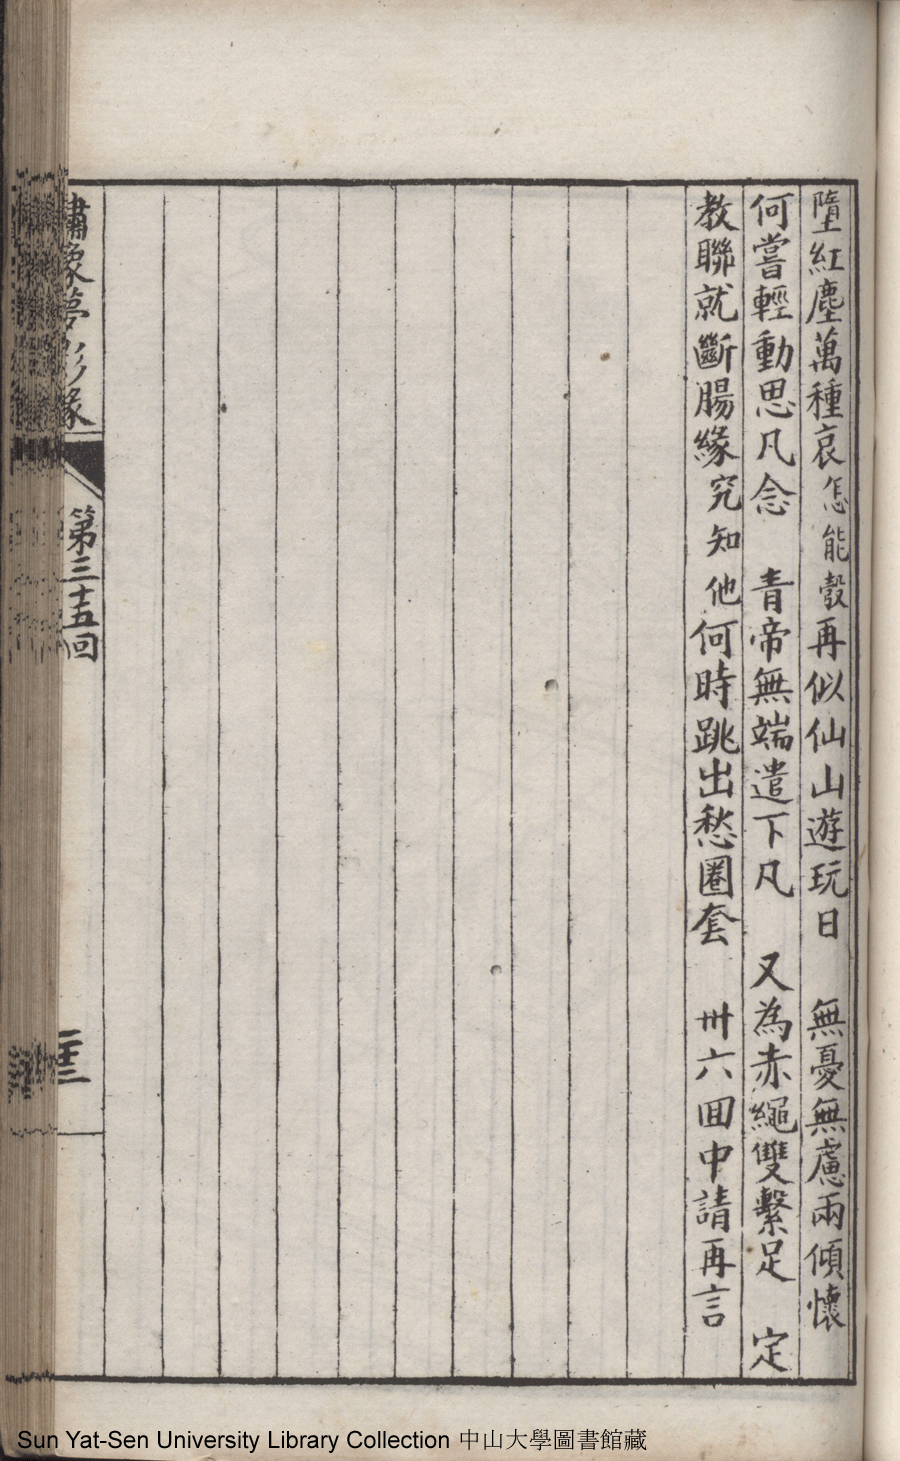 墮紅塵萬種哀怎能彀再似仙山遊玩日　無憂無慮兩傾懷
何嘗輕動思凡念　青帝無端遣下凡　又為赤繩雙繫足　定
教聯就斷腸緣究知他何時跳出愁圈套　卅六回中請再言
繡像夢影緣
第三十五回
Sun Yat-Sen University Library Collection 中山大學圖書館藏